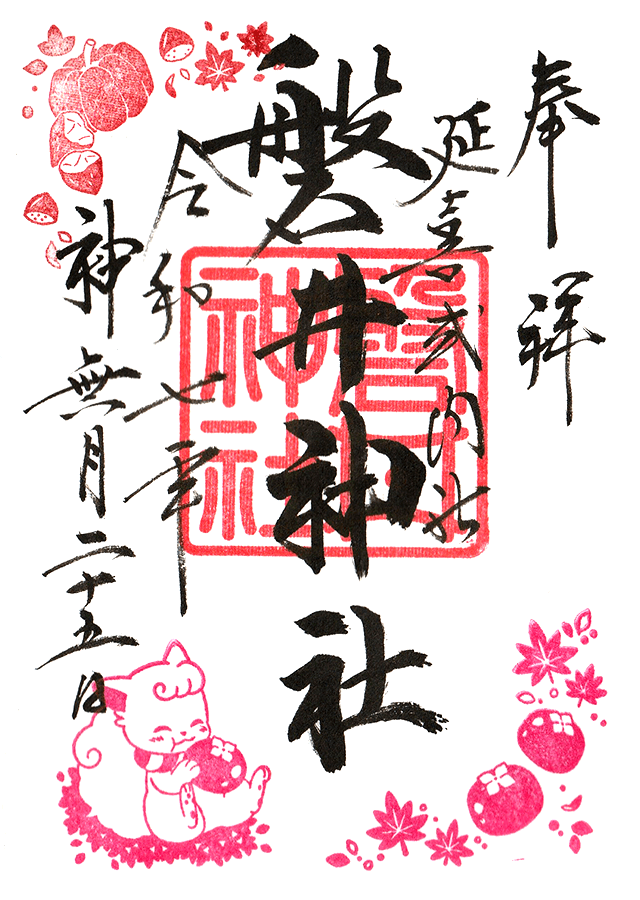 奉拝
延喜式内社
磐井神社
磐井
神社
令和七年
神無月二十五日